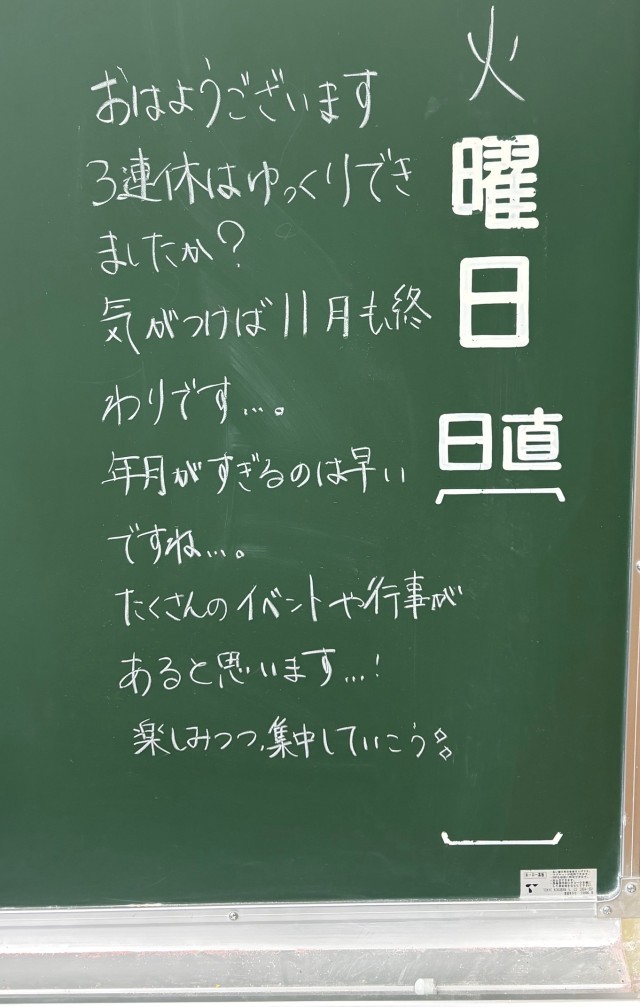 おはようございます
3連休はゆっくりでき
ましたか?
気がつけば11月も終
わりです…。
年月がすぎるのは早い
ですね…。
たくさんのイベントや行事が
あると思います…!
楽しみつつ、集中していこう
火
曜
日
日直